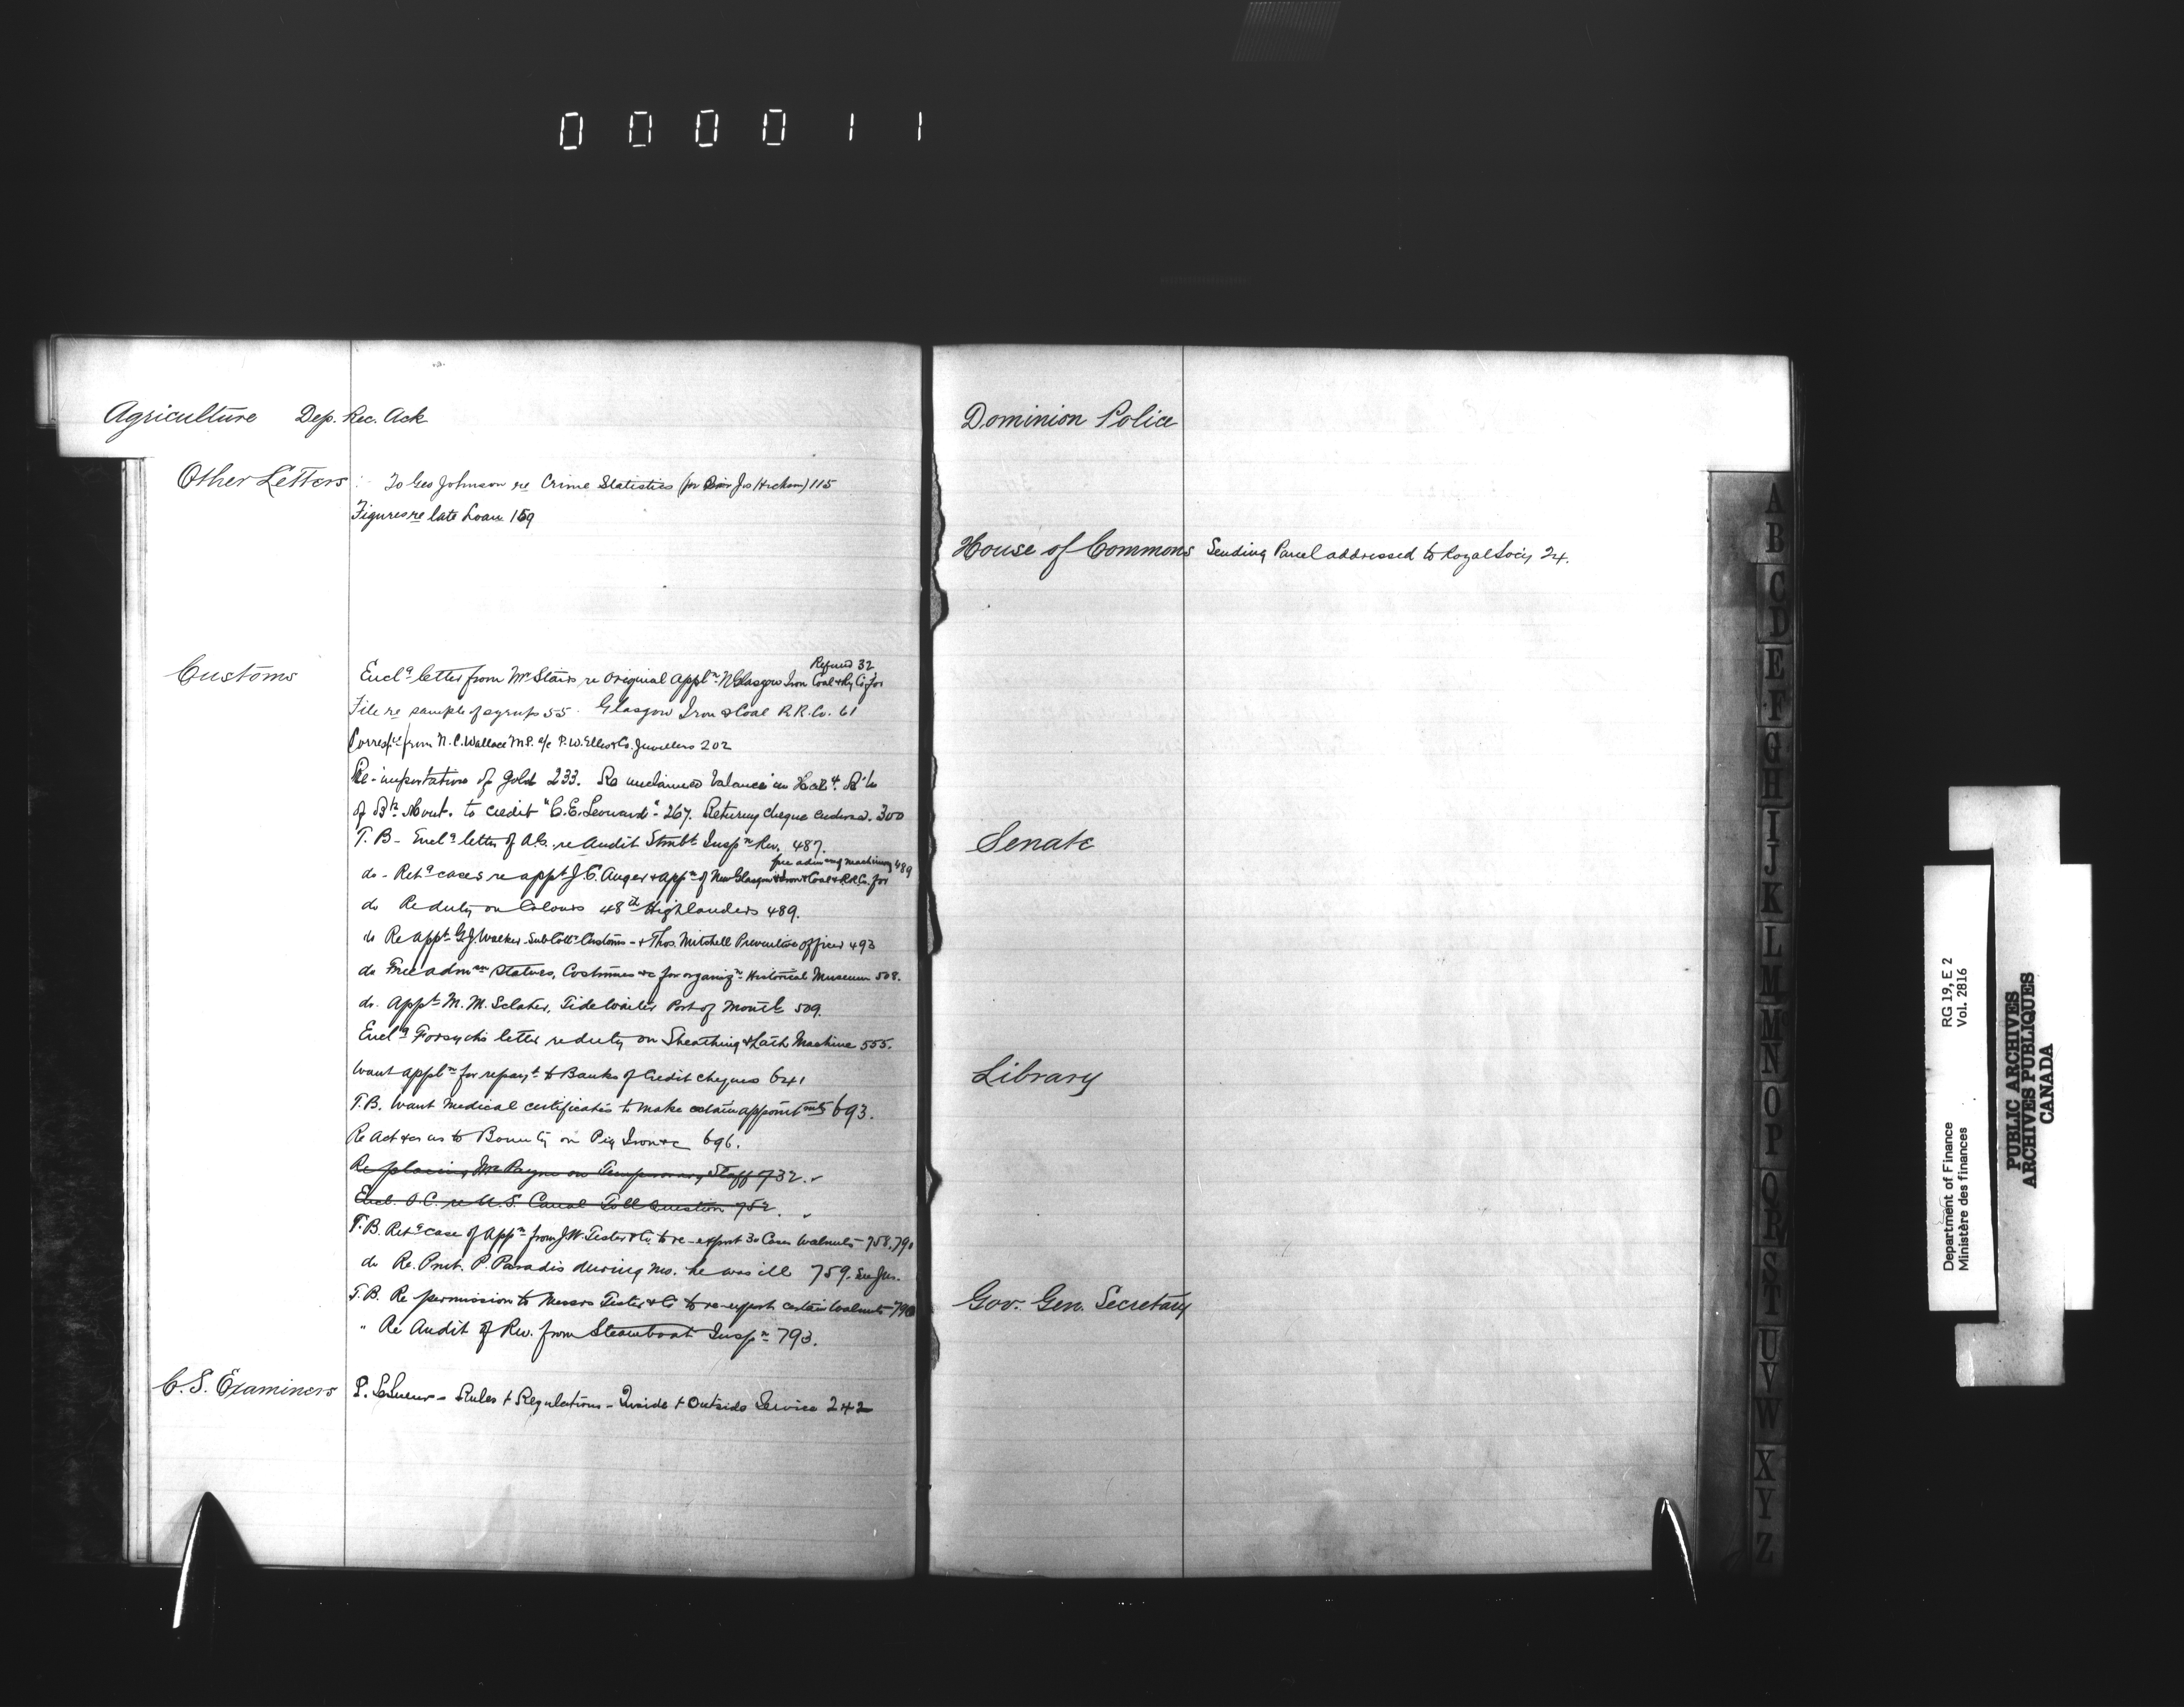 000011
Agriculture Dep. Rec. Ack
Other Letters :- To Geo Johnson re Crime Statistics (for Jos Hickson) 115
Figures re late Loan 159
Customs
Refund 32
Encl^g letter from Mr Stairs re original Appl^n N Glasgow Iron Coal & Ry Co. for
File re sample of syrups 55. Glasgow Iron & Coal R.R. Co. 61
Corresp^ce from N. C. Wallace M.P. a/c P. W. Ellis & Co. Jewellers 202
Re-importation of gold 233. Re unclaimed balance in
of B^k Mont. to credit "C. E. Leonard" 267. Returng cheque endorsed. 300
T. B - Encl^g letter of A.G. re Audit Stmbt Insp^n Rev. 487.
free adm ang machinery 489
do - Ret^g cases re app^t J. C. Auger & app^n of New Glasgow Iron & Coal & R.R. Co. for
do Re duty on Colours 48th Highlanders 489.
do Re app^t G. J. Walker Sub Coll^r Customs - & Thos. Mitchell Preventive Officer 493
do Free adm^on Statues, Costumes &c for organiz^n Historical Museum 508.
do. App^t M. M. Sclater, Tide Waiter Port of Mont^l 509.
Encl^g Forsyth's letter re duty on Sheathing & Lath Machine 555.
Want appl^n for repay^t to Banks of Credit Cheques 641
T.B. Want Medical certificates to make certain appointm^ts 693.
Re Act &c as to Bounty on Pig Iron &c 696.
Re placing Mr Payne on Temporary Staff 732.
Encl. O.C. re U.S. Canal Toll Question 752.
T.B. Ret^g case of App^n from J. W. Tester & Co. to re-export 30 Cases Walnuts 758, 790
do Re. Pmt. P. Paradis during mo. he was ill 759. See Jus.
T.B. Re permission to Messrs Tester & Co to re-export certain walnuts 790
" Re Audit of Rev. from Steamboat Insp^n 793.
C. S. Examiners P. LeSueur - Rules & Regulations - Inside & Outside Service 242
Dominion Police
House of Commons Sending Parcel addressed to Royal Socy 24.
Senate
Library
Gov. Gen. Secretary
A
B
C
D
E
F
G
H
I
J
K
L
M
Mc
N
O
P
Q
R
S
T
U
V
W
X
Y
Z
Department of Finance
Ministère des finances
RG 19, E 2
Vol. 2816
PUBLIC ARCHIVES
ARCHIVES PUBLIQUES
CANADA